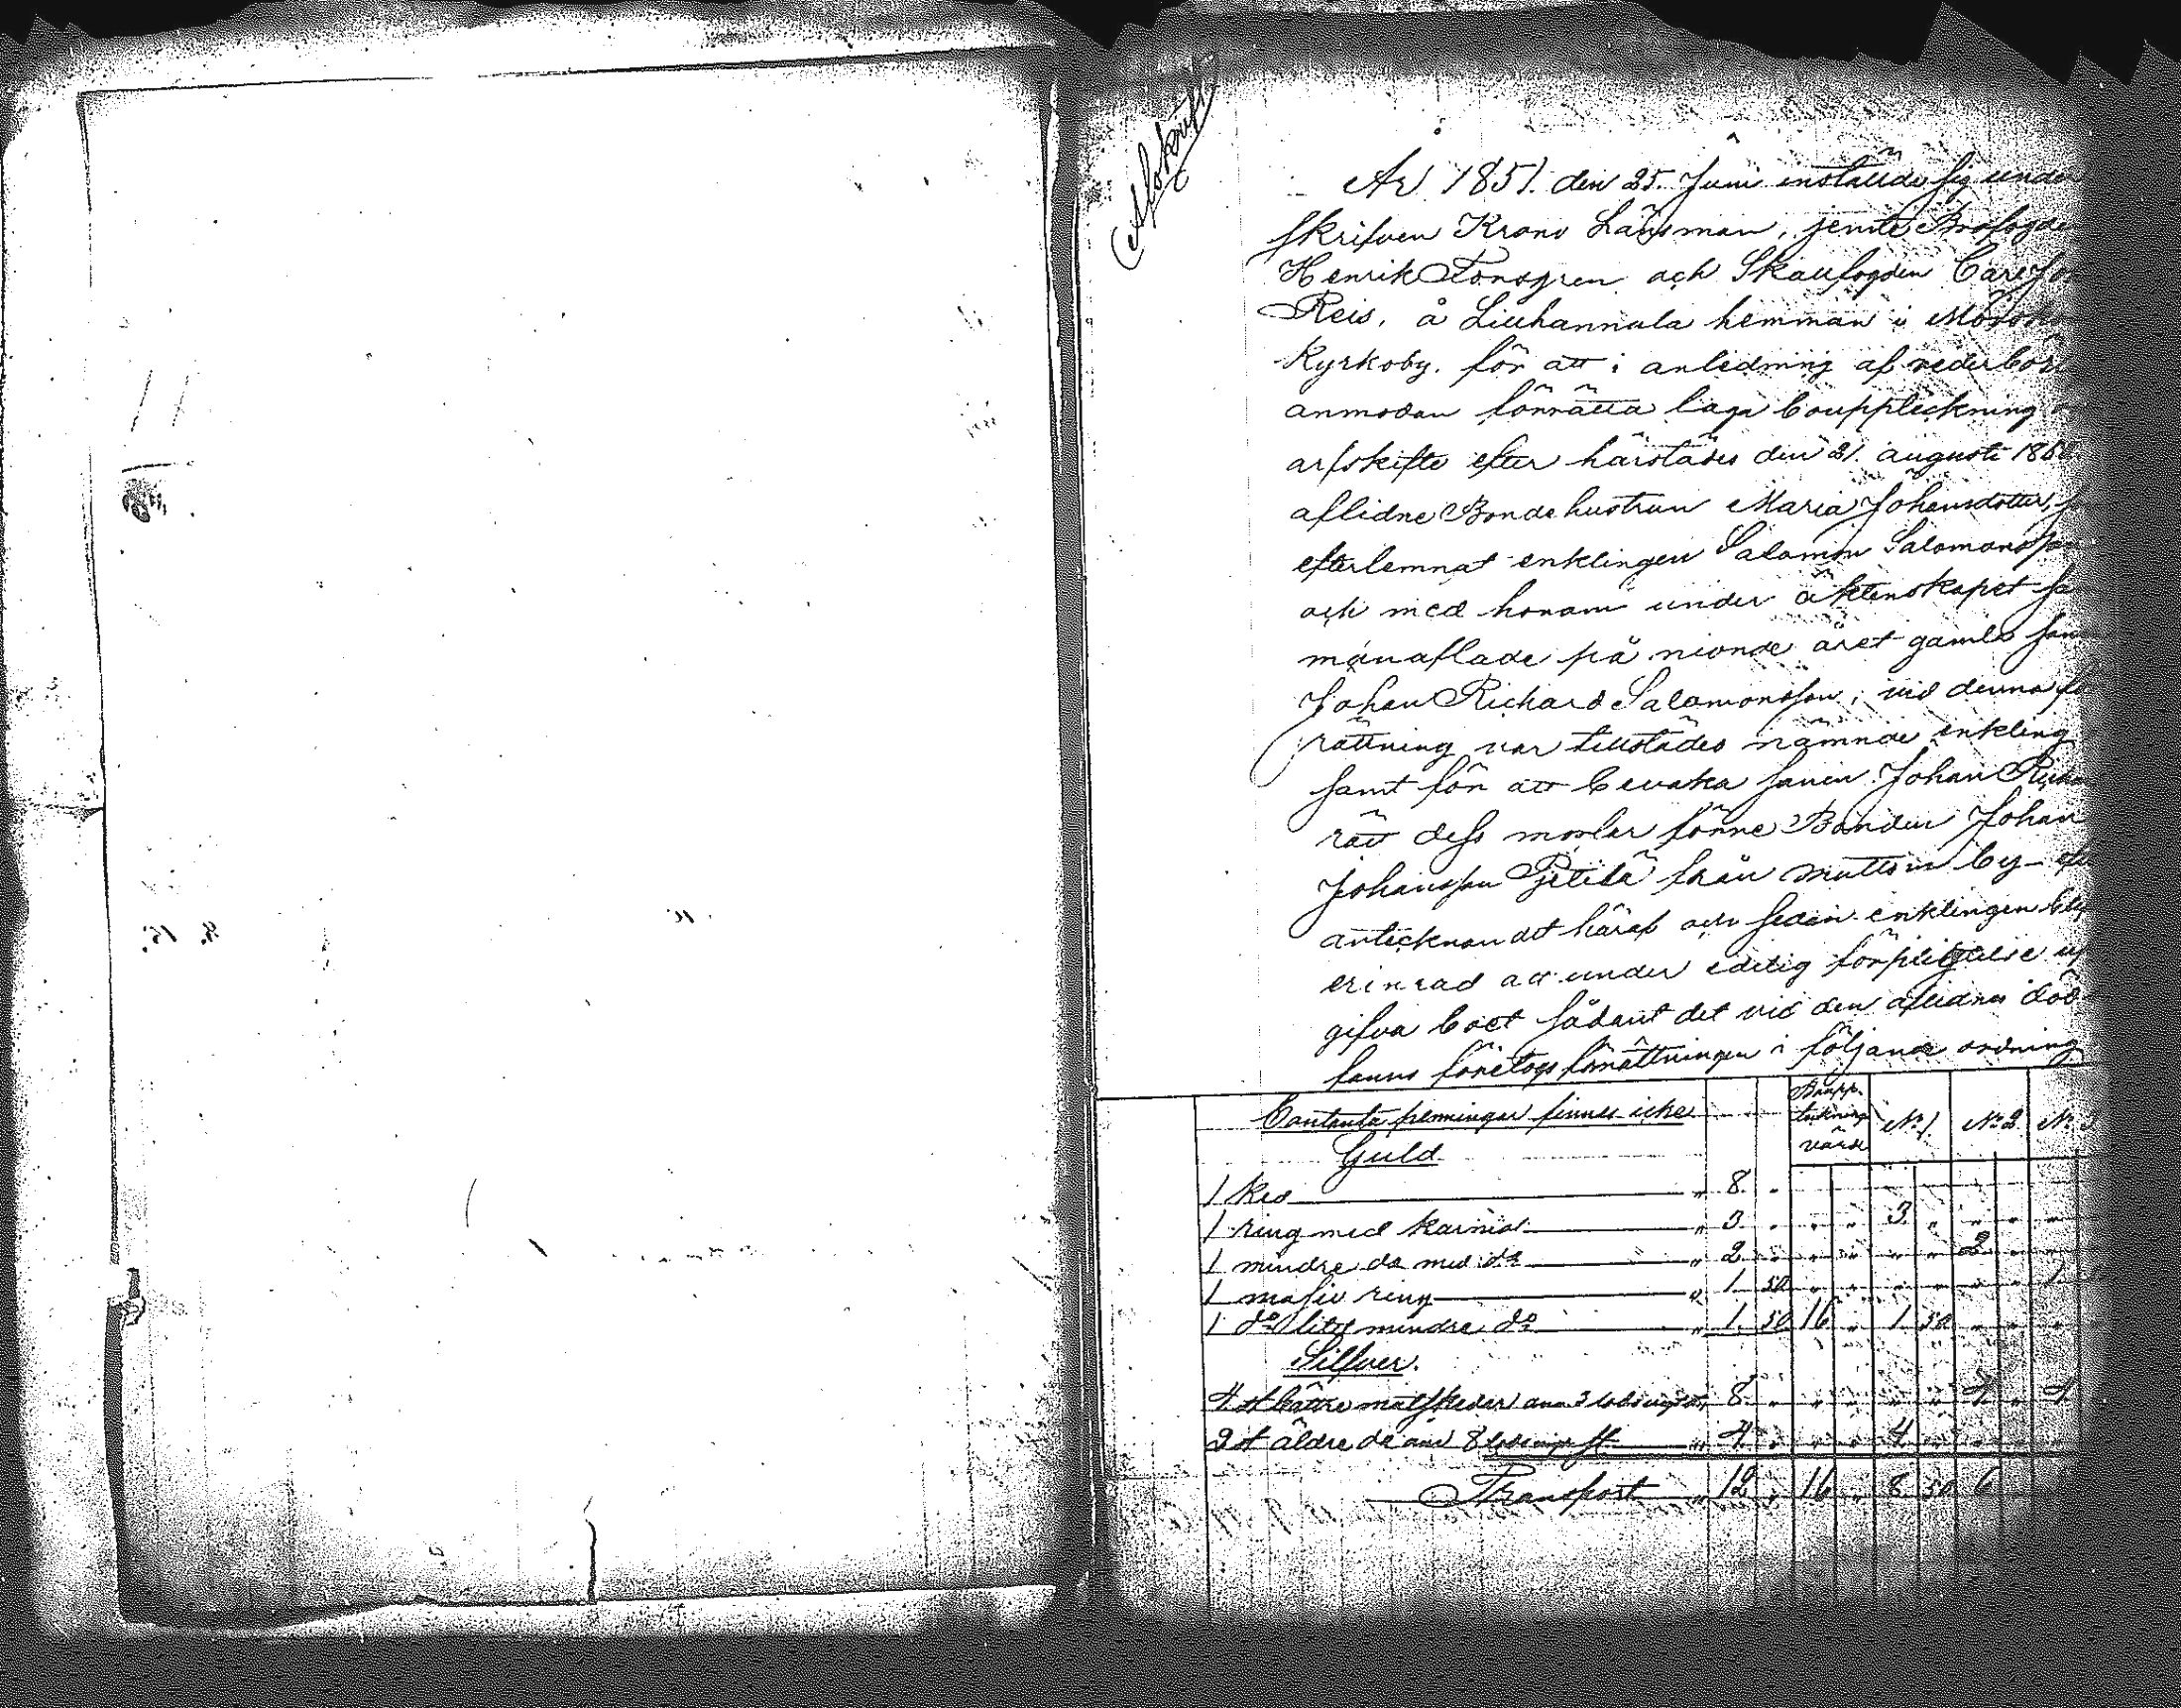 Afskrift
År 1851. den 25. Juni instälde sig unde
skrifven Krono Länsman, jemte Brofogde
Henrik Forsgren och Skallfogden Carl Jo
Reis, å Liuhannula hemman i
Kyrkoby. för att i anledning af vederbör
anmodan förrätta laga bouppteckning
arfskifte efter härstädes den 21. augusti 1850
aflidne Bondehustrun Maria Johansdotter, so
efterlemnat enklingen Salomon Salomonsson
och med honom under äktenskapet sa
manaflade på nionde året gamle son
Johan Richard Salomonsson; vid denna fö
rättning var tillstädes nämnde enkling
samt för att bevaka sonen Johan Richa
rätt dess morbror Bonden Johan
Johansson från by – eft
antecknandet häraf och sedan enklingen blif
erinrad att under edelig förpligtelse up
gifva boet sådant det vid den aflidnes död
fanns företogs förrättningen i följande ordning
Contanta penningar finnes icke
Boupp-
tecknings
värde
No 1. No 2. No 3
Guld
1 ked " 8. "
1 ring med karniol " 3. " " " 3. " " " "
1 mindre do med do " 2. " " " " " 2 " "
1 masiv ring " 1. 50 " " " " " " 1.
1 do litet mindre do " 1. 50 16 " 1 50 " " "
Silfver.
4 st bättre matskedar 3 " 8. " " " " " 4. " 4.
2 st äldre do 8 st " 4. " " " 4. " " " "
Transport " 12 " 16 " 8 50 6